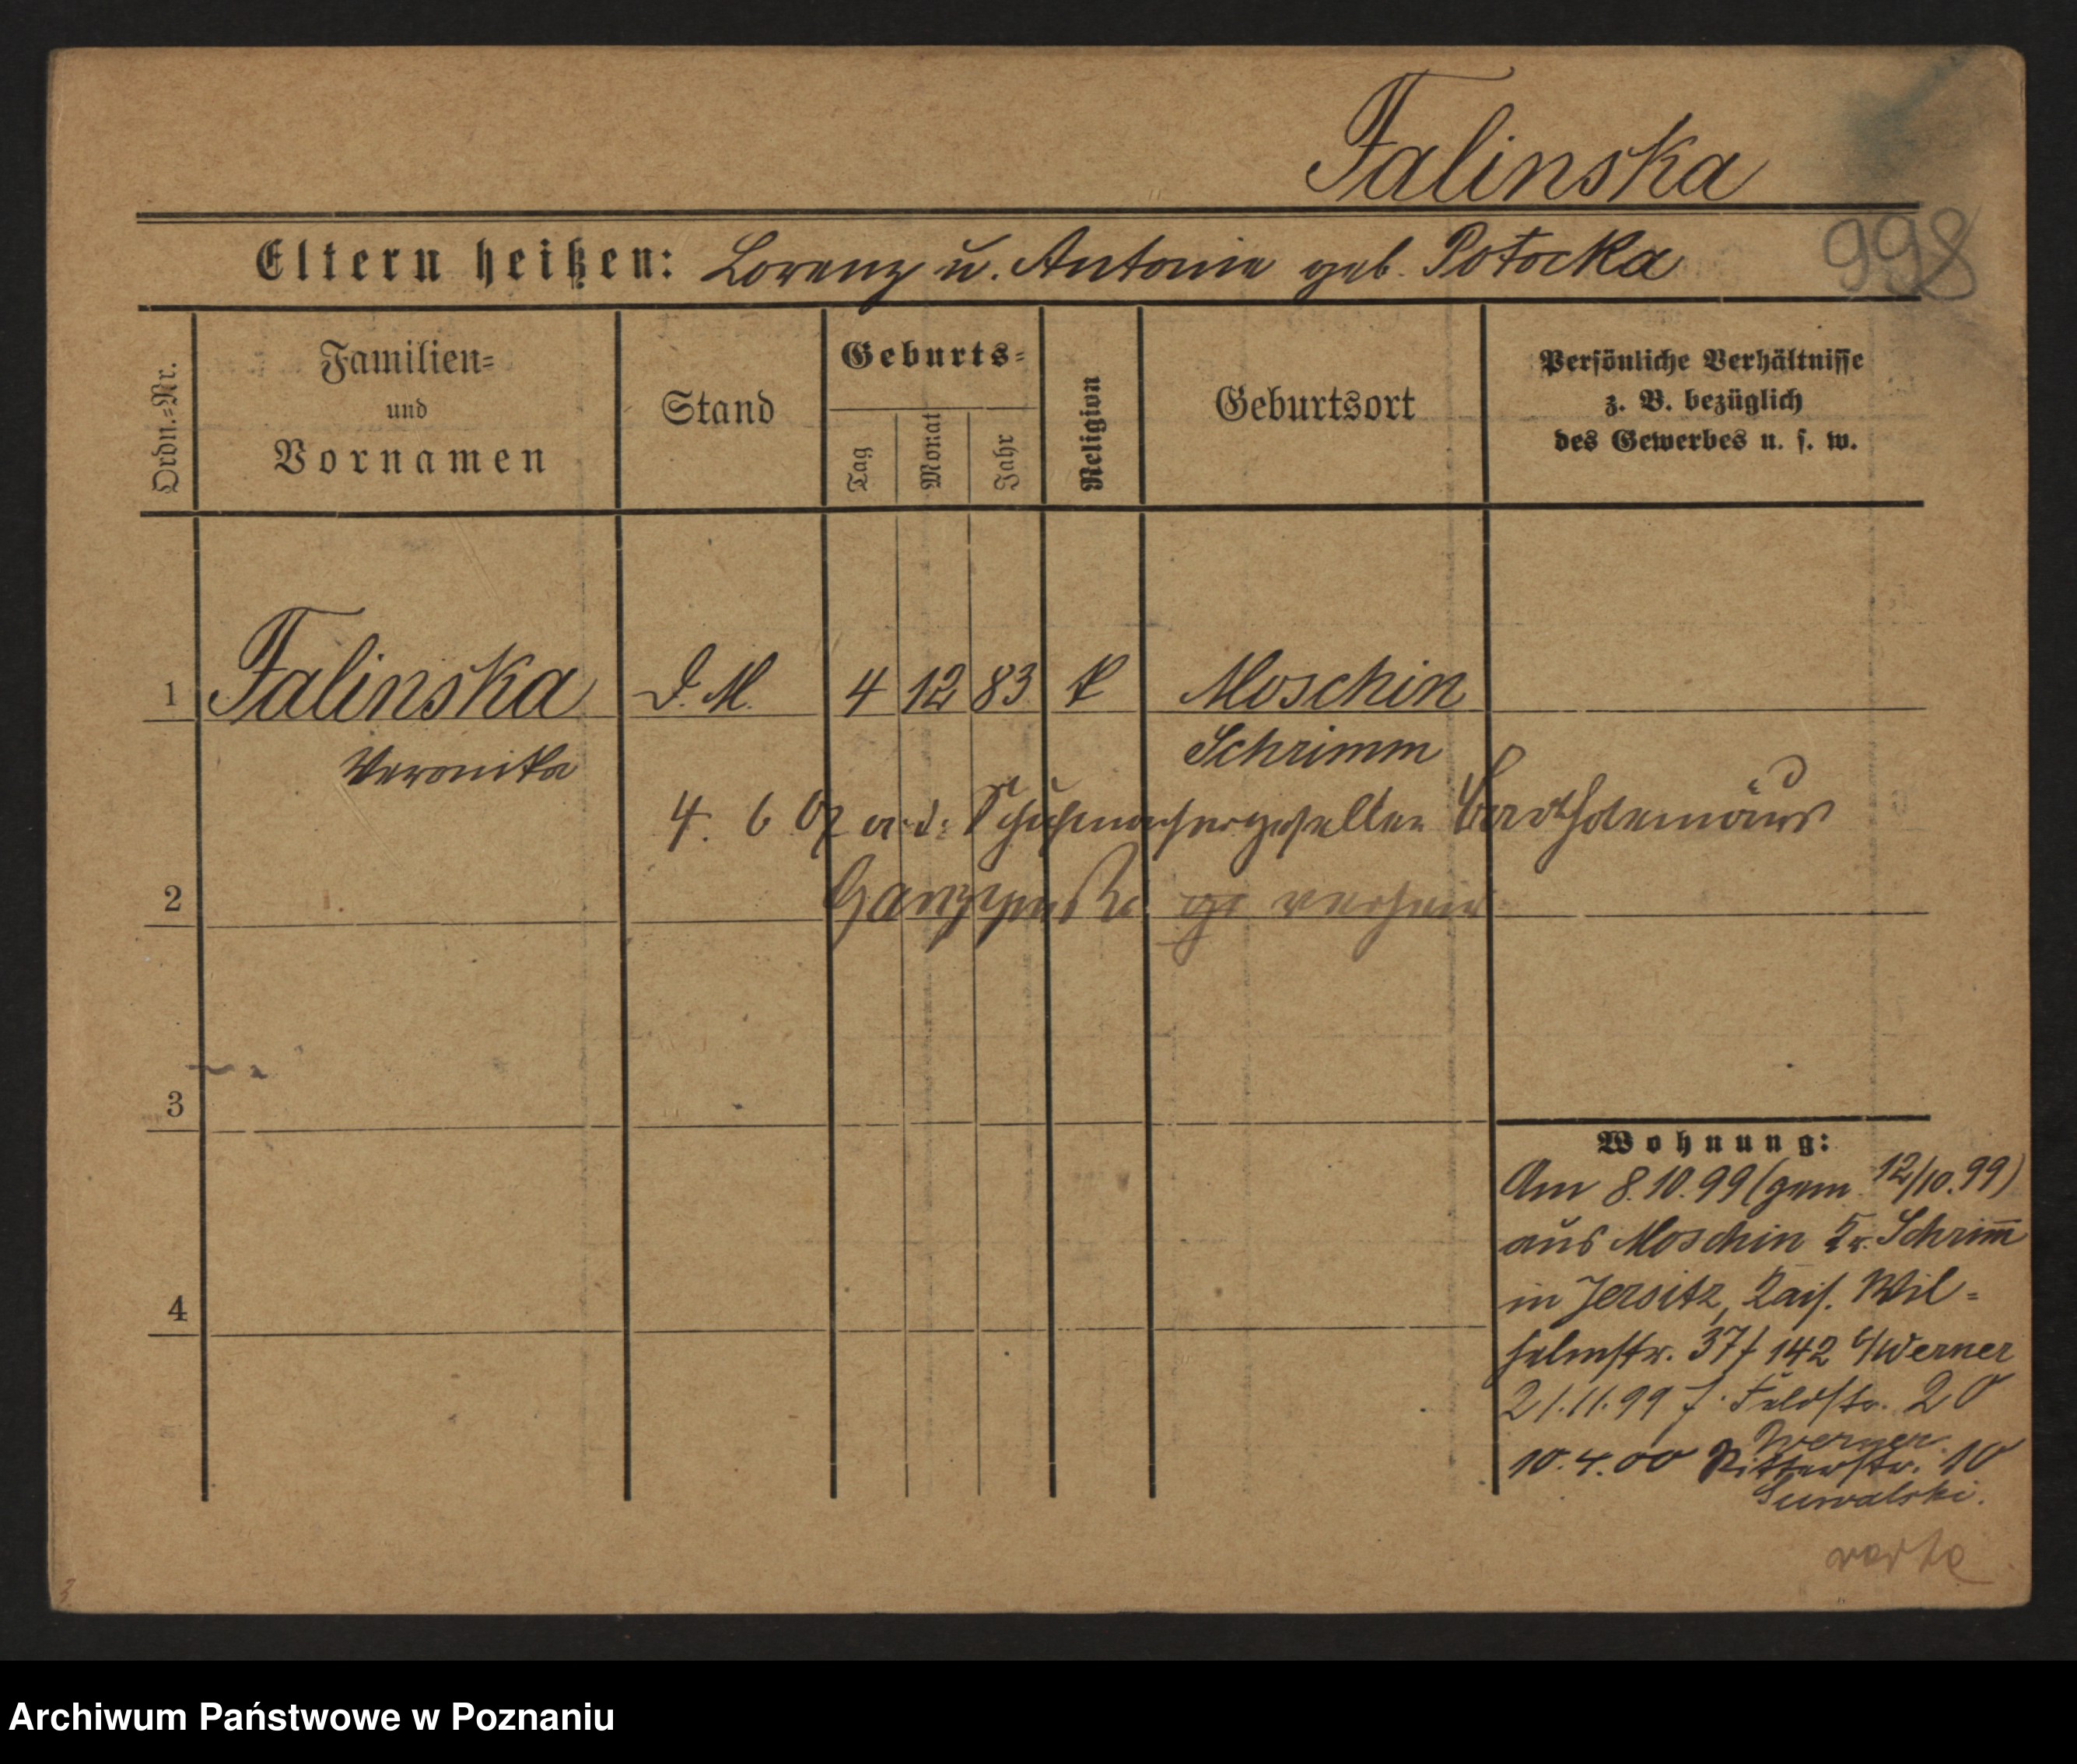 Falinska
Eltern heißen: Lorenz u. Antonie geb. Potocka
998
Ordn.=Nr.
Familien=
und
Vornamen
Stand
Geburts=
Tag
Monat
Jahr
Religion
Geburtsort
Persönliche Verhältnisse
z. B. bezüglich
des Gewerbes u. s. w.
1 Falinska D. M. 4 12 83 k Moschin
Veronika Schrimm
4. 6 07 a. d. Schuhmachergesellen Bartholemäus
2
3
4
Wohnung:
Am 8.10.99 (gem 12/10.99)
aus Moschin Kr. Schrim̅
in Jersitz, Kais. Wil=
helmstr. 37 142 b/Werner
21.11.99 J. Feldstr. 20
Werner
10.4.00 Ritterstr. 10
Suwalski.
verte
3
Archiwum Państwowe w Poznaniu